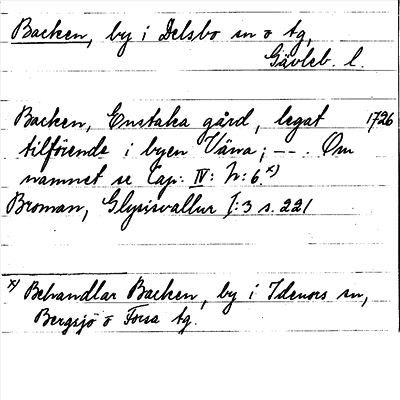 Backen, by i Delsbo sn o tg,
Gävleb. l.
Backen, Enstaka gård, legat 1726
tilförende i byen Väna; --. Om
namnet se Cap: IV: N: 6.x)
Broman, Glysisvallur I:3 s. 221
x) Behandlar Backen, by i Idenors sn,
Bergsjö o Forsa tg.